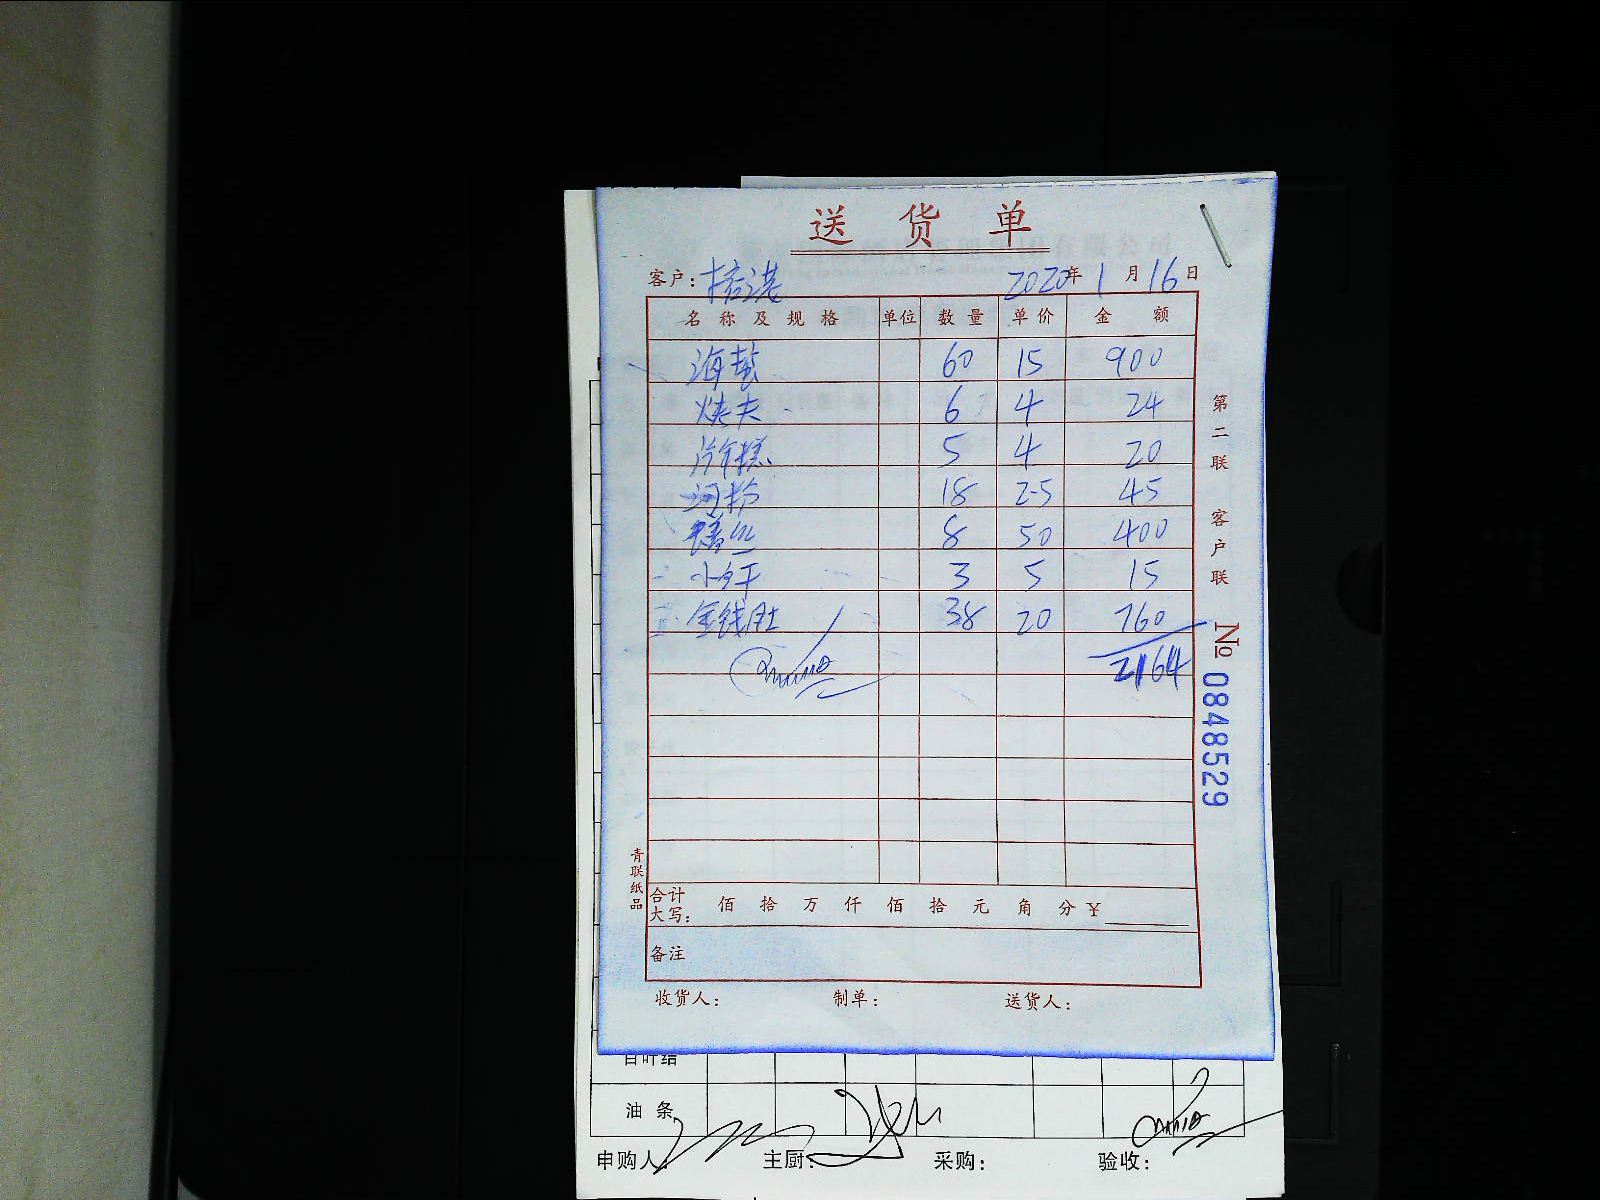 送货单
客户: 2020年1月16日
名称及规格 单位 数量 单价 金额
海蜇 60 15 900
烤夫 6 4 24
冷年糕 5 4 20
河粉 18 2.5 45
8 50 400
3 5 15
金钱肚 38 20 760
2164
合计大写: 佰 拾 万 仟 佰 拾 元 角 分 ¥
备注
收货人: 制单: 送货人:
第二联 客户联
№ 0848529
青联纸品
百叶结
油条
申购人: 主厨: 采购: 验收: